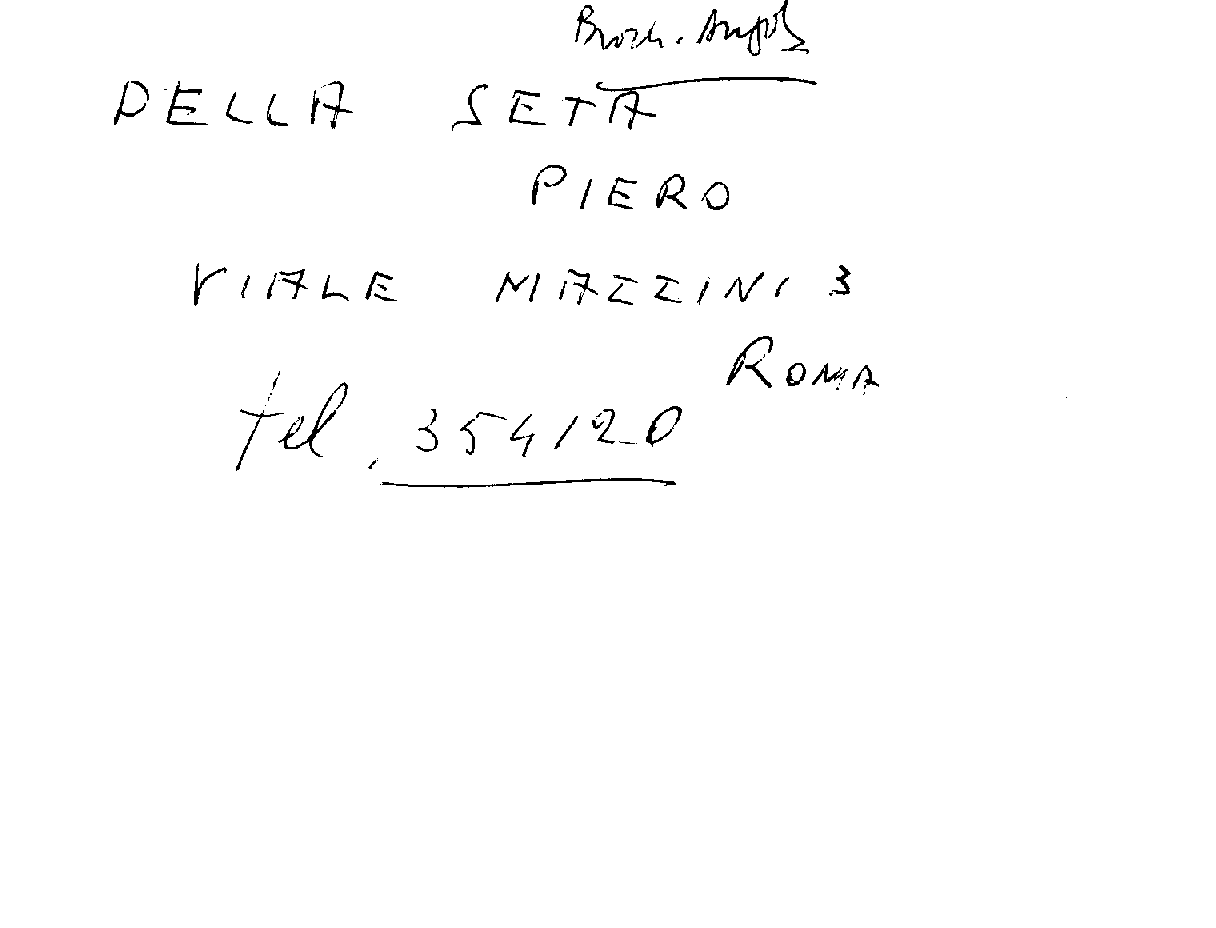 DELLA SETA
PIERO
VIALE MAZZINI 3
ROMA
tel. 354120